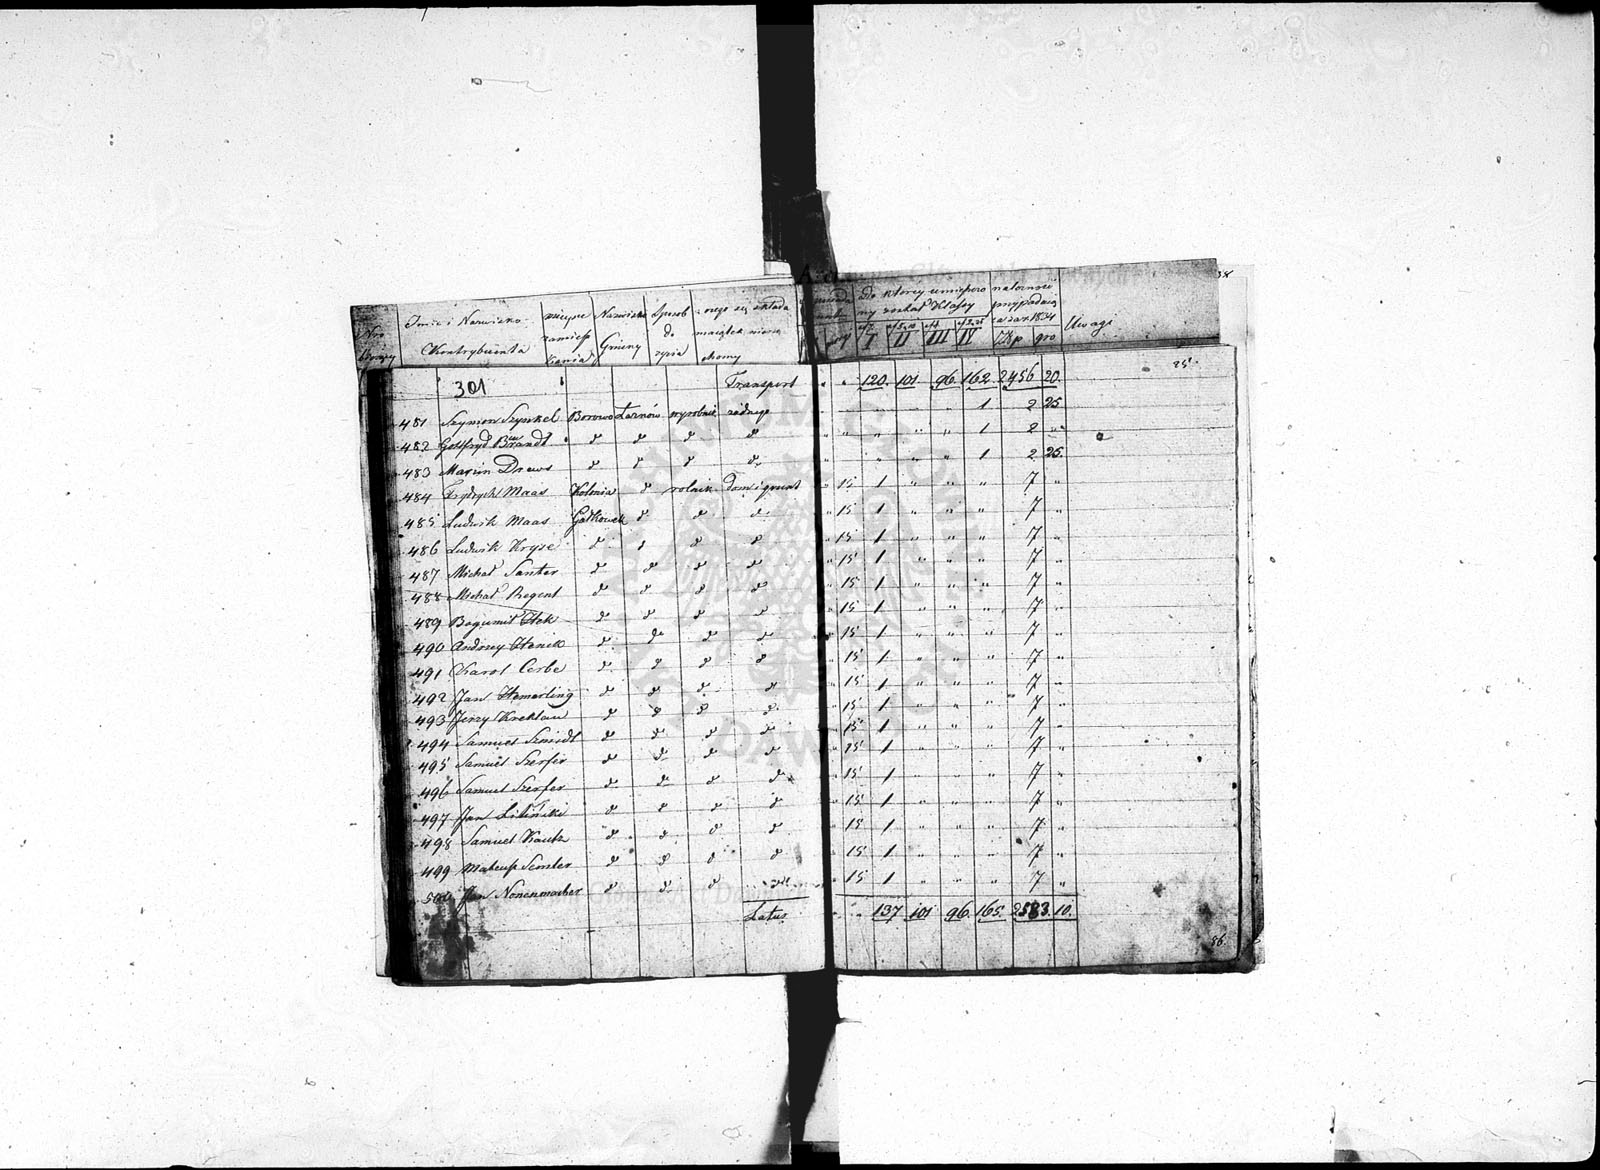 38
Imie i Nazwisko Kontrybuenta
Nazwisko Gminy
Sposob do życia
I II III IV Złp gro
Uwagi
25
301 Transport " " 120. 101. 96. 162. 2456 20.
481 Szymon Szynkel Borowo Łaznów wyrobnik żadnego 1 2 25
482 Gottfryd Brandt d d d d " " " " " 1 2 "
483 Marcin Drews d d d d " " " " 1 2 25.
484 Frydrych Maas Kolonia d rolnik Dom i grunt " 15 1 " " " 7 "
485 Ludwik Maas Gałkowek d d d " 15 1 " " " 7 "
486 Ludwik Kryse d d d d " 15 1 " " " 7 "
487 Michał Santer d d d d " 15 1 " " " 7 "
488 Michał Regent d d d d " 15 1 " " " 7 "
489 Bogumił d d d d " 15 1 " " " 7 "
490 Andrzey d d d d " 15 1 " " " 7 "
491 Karol Cerbe d d d d " 15 1 " " " 7 "
492 Jan Hemerling d d d d " 15 1 " " " 7 "
493 Jerzy Kreklau d d d d " 15 1 " " " 7 "
494 Samuel Szmidt d d d d " 15 1 " " " 7 "
495 Samuel Szerfer d d d d " 15 1 " " " 7 "
496 Samuel Szerfer d d d d " 15 1 " " " 7 "
497 Jan d d d d " 15 1 " " " 7 "
498 Samuel Kautz d d d d " 15 1 " " " 7 "
499 Mateusz Semler d d d d " 15 1 " " " 7 "
500 Jan Nonenmacher d d d d " 15 1 " " " 7 "
Latus " " 137 101 96. 165. 2583. 10.
86.